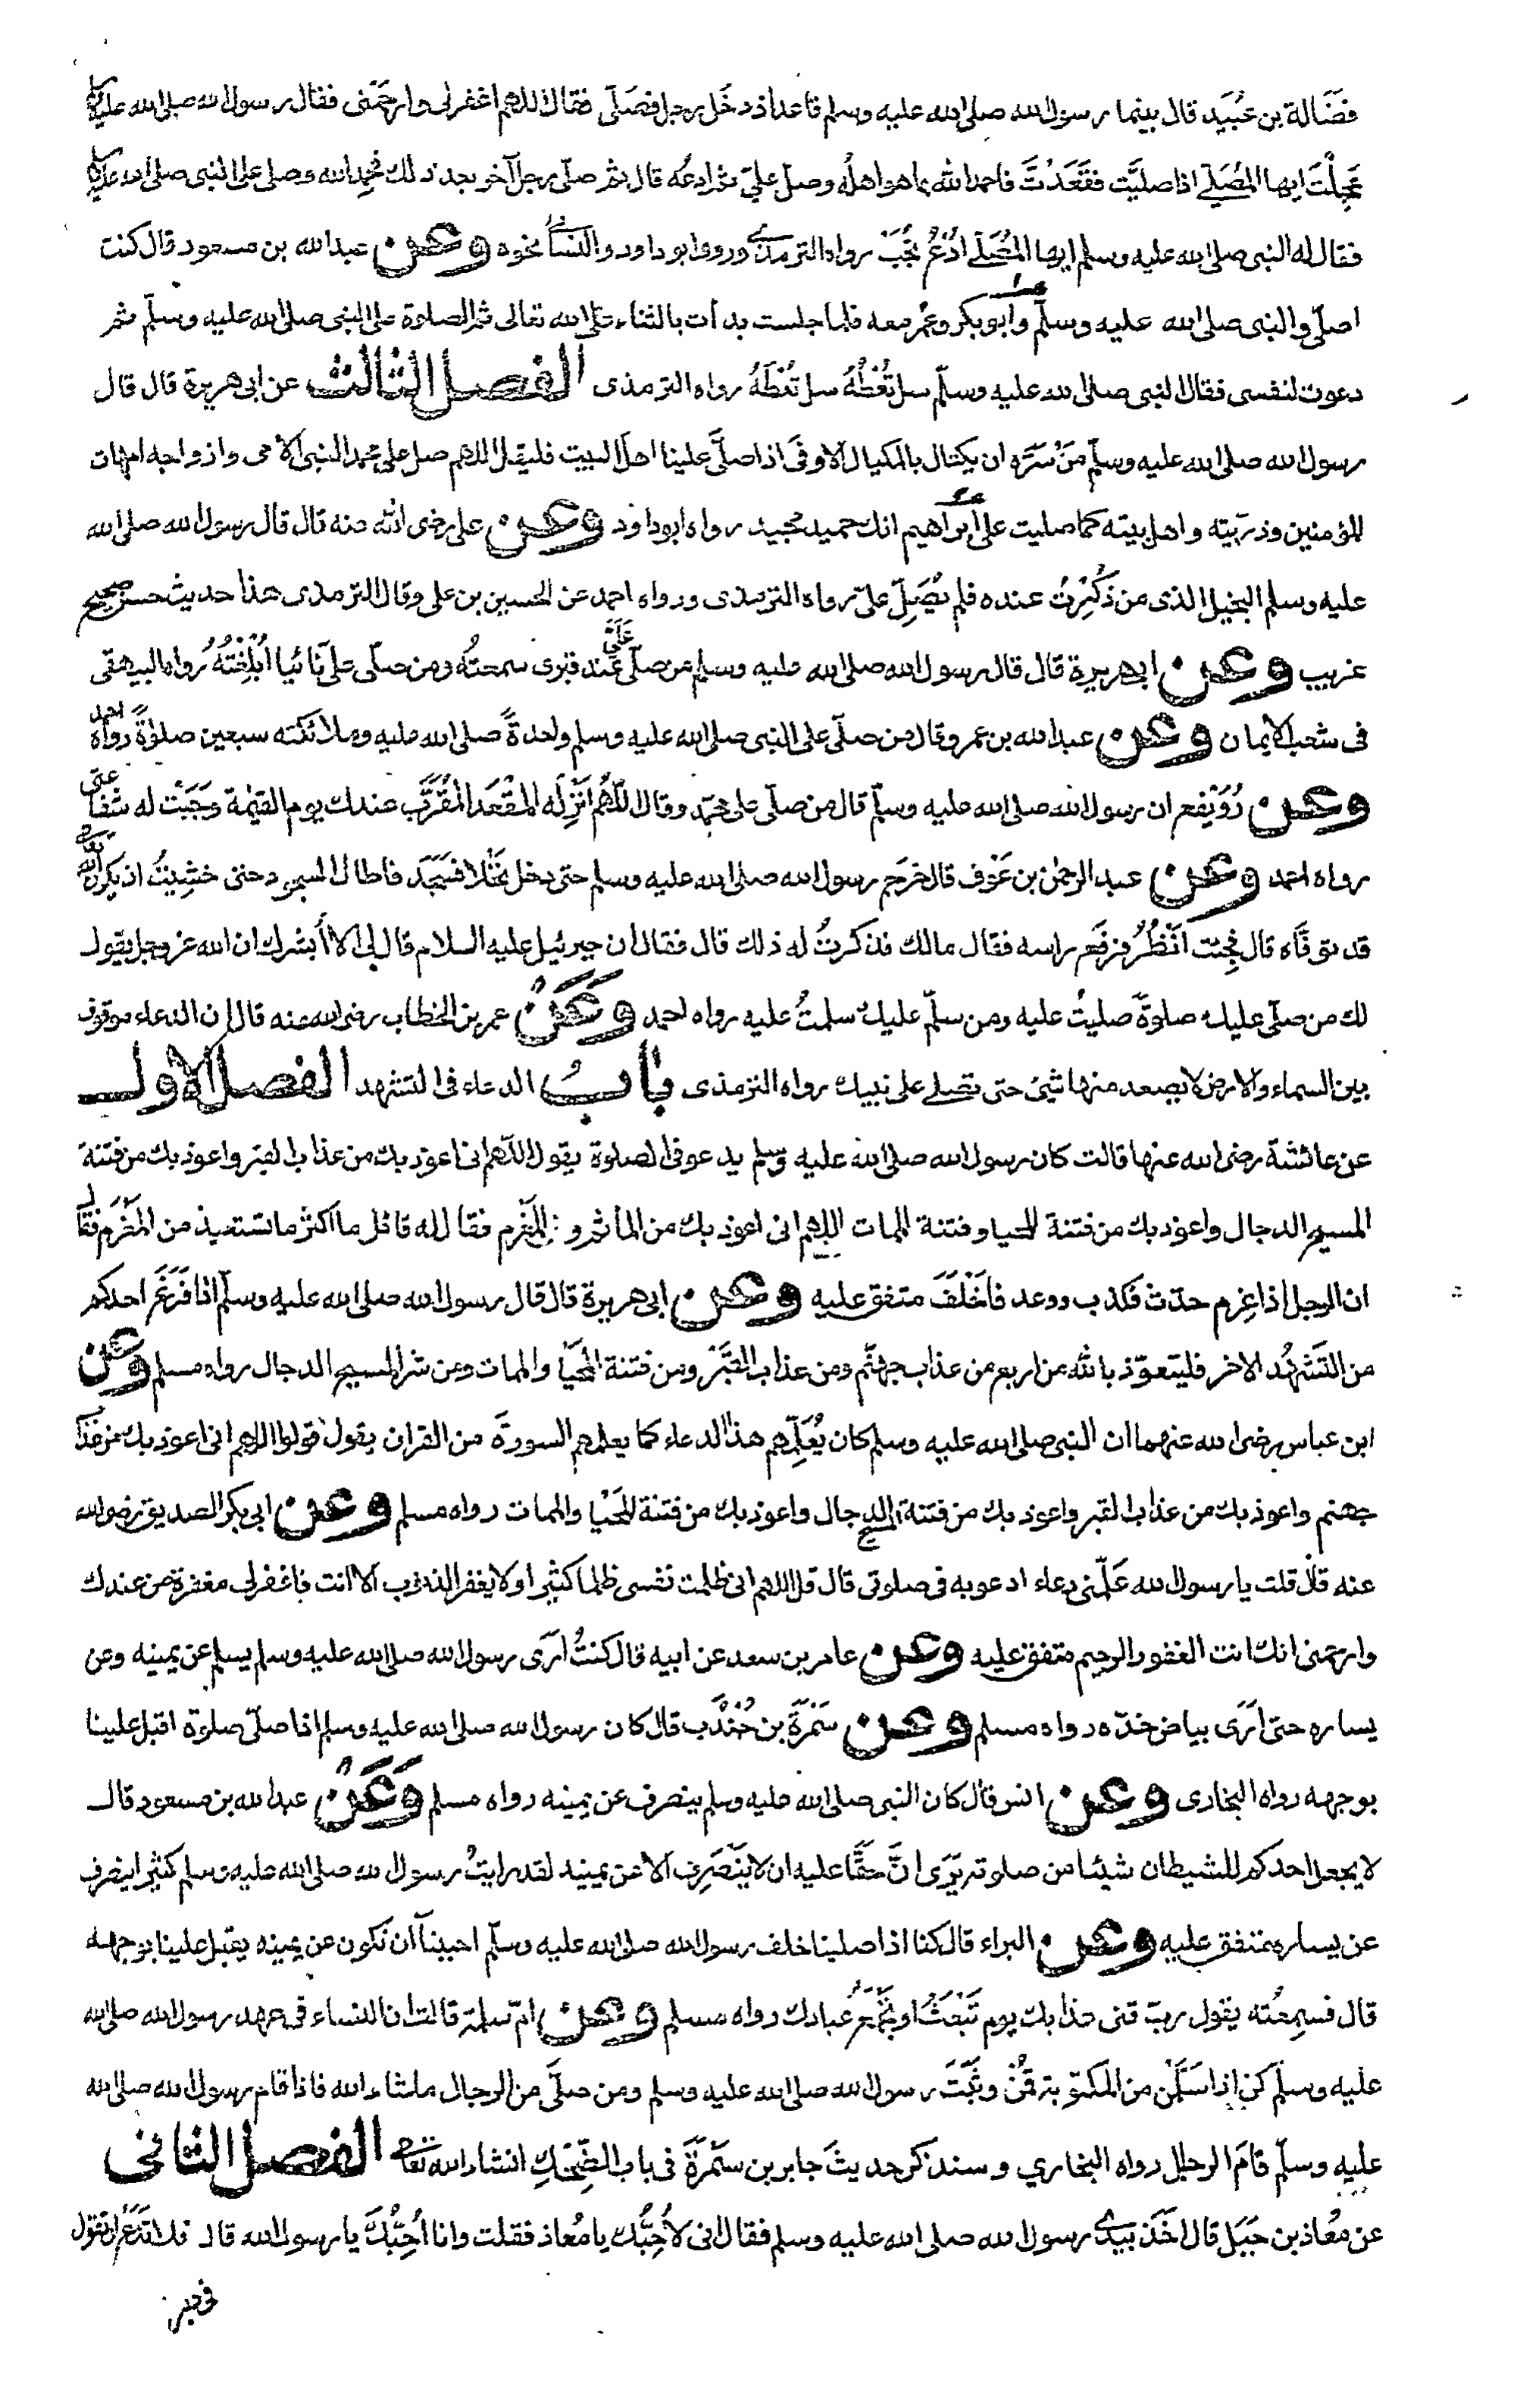 فَضَالة بن عُبَيد قال بينما رسول الله صلى الله عليه وسلم قاعد اذ دخل رجل فصَلّى فقال اللهم اغفرلى وارحَمْنى فقال رسول الله صلى الله عليه وسلم
عَجِلْتَ ايها المُصَلّى اذا صليَّت فقَعَدْتَّ فاحمد الله بما هو اهلُه وصلّ عليّ ثم ادعُه قال ثم صلّى رجل آخر بعد ذلك فحمد الله وصلى على النبى صلى الله عليه وسلم
فقال له النبى صلى الله عليه وسلم ايها المُصَلّى ادْعُ تُجَبْ رواه الترمذى وروى ابو داود والنسائى نحوه وعن عبد الله بن مسعود قال كنت
اصلّى والنبى صلى الله عليه وسلّم وابو بكر وعمر معه فلما جلست بدأت بالثناء على الله تعالى ثم الصلوة على النبى صلى الله عليه وسلّم ثم
دعوت لنفسى فقال النبى صلى الله عليه وسلّم سل تُعْطَهْ سل تُعْطَهْ رواه الترمذى الفصل الثالث عن ابى هريرة قال قال
رسول الله صلى الله عليه وسلّم مَنْ سَرَّه ان يكتال بالمكيال الاوفى اذا صلّى علينا اهل البيت فليقل اللهم صل على محمد النبى الامى وازواجه امهات
المؤمنين وذريّته واهل بيته كما صليت على ابراهيم انك حميد مجيد رواه ابوداود وعن على رضى الله عنه قال قال رسول الله صلى الله
عليه وسلم البخيل الذى من ذُكِرْتُ عنده فلم يُصَلِّ علىّ رواه الترمذى ورواه احمد عن الحسين بن على وقال الترمذى هذا حديث حسن صحيح
غريب وعن ابى هريرة قال قال رسول الله صلى الله عليه وسلم من صلّى عَلَىَّ عند قبرى سمعتُه ومن صلّى علىّ نائيا اُبْلِغْتُهُ رواه البيهقى
فى شعب الايمان وعن عبد الله بن عمرو قال من صلّى على النبى صلى الله عليه وسلم واحدةً صلى الله عليه وملائكته سبعين صلوٰةً رواه احمد
وعن رُوَيْفِع ان رسول الله صلى الله عليه وسلّم قال من صلّى على محمّد وقال اللّٰهُمّ اَنْزِلْه المقْعَد المُقَرَّب عندك يوم القيٰمة وَجَبَتْ له شفاعتى
رواه احمد وعن عبد الرحمٰن بن عَوْف قال خرَج رسول الله صلى الله عليه وسلم حتى دخل نَخْلا فسَجَد فاطال السجود حتى خشِيتُ ان يكون الله تعالى
قد توفّاه قال فجئت انْظُرُ فرفَع راسه فقال مالك فذكرتُ له ذلك قال فقال ان جبرئيل عليه السلام قال لى الا اُبشرك ان الله عز وجل يقول
لك من صلّى عليك صلوةً صليتُ عليه ومن سلّم عليك سلمتُ عليه رواه احمد وَعَنْ عمر بن الخطاب رضى الله عنه قال ان الدعاء موقوف
بين السماء والارض لا يصعد منها شىئ حتى تصلى على نبيك رواه الترمذى بابُ الدعاء فى التشهد الفصل الاول
عن عائشة رضى الله عنها قالت كان رسول الله صلى الله عليه وسلم يدعو فى الصلوة يقول اللّٰهم انى اعوذ بك من عذاب القبر واعوذ بك من فتنة
المسيح الدجال واعوذ بك من فتنة المحيا وفتنة الممات اللهم انى اعوذ بك من المأثم و المَغْرم فقال له قائل ما اكثر ما تستعيذ من المَغْرَم فقال
ان الرجل اذا غرِم حدّث فكذب ووعد فاَخْلَفَ متفق عليه وعن ابى هريرة قال قال رسول الله صلى الله عليه وسلّم اذا فَرَغَ احدكم
من التَشَهُّد الاخر فليتعوّذ بالله من اربع من عذاب جهنّم ومن عذاب القَبْر ومن فتنة المَحْيَا والممات ومن شر المسيح الدجال رواه مسلم وعن
ابن عباس رضى الله عنهما ان النبى صلى الله عليه وسلم كان يُعَلِّمهم هذا الدعاء كما يعلمهم السورةَ من القران يقول قولوا اللهم انى اعوذ بك من عذاب
جهنم واعوذ بك من عذاب القبر واعوذ بك من فتنة المسيح الدجال واعوذ بك من فتنة المَحْيا والممات رواه مسلم وعن ابى بكر الصديق رضى الله
عنه قال قلت يا رسول الله عَلّمنى دعاء ادعو به فى صلوتى قال قل اللهم انى ظلمت نفسى ظلما كثيرا ولا يغفر الذنوب الا انت فاغفرلى مغفرة من عندك
وارحمنى انك انت الغفور الرحيم متفق عليه وعن عامر بن سعد عن ابيه قال كنتُ ارَى رسول الله صلى الله عليه وسلم يسلم عن يمينه وعن
يساره حتى ارَى بياض خدّه رواه مسلم وعن سَمُرَةَ بن جُنْدُب قال كان رسول الله صلى الله عليه وسلم اذا صلّى صلوة اقبل علينا
بوجهه رواه البخارى وعن انس قال كان النبى صلى الله عليه وسلم ينصرف عن يمينه رواه مسلم وَعَنْ عبد الله بن مسعود قال
لا يجعل احدكم للشيطان شيئا من صلوته يَرَى انَّ حَقًّا عليه ان لا يَنْصَرِف الا عن يمينه لقد رايتُ رسول الله صلى الله عليه وسلم كثيرا ينصرف
عن يساره متفق عليه وعن البراء قال كنا اذا صلينا خلف رسول الله صلى الله عليه وسلّم احببنا ان نكون عن يمينه يقبل علينا بوجهه
قال فسمِعْتُه يقول ربّ قنى عذابك يوم تَبْعَثُ او تَجْمَعُ عبادك رواه مسلم وعن امّ سلمة قالت ان النساء فى عهد رسول الله صلى الله
عليه وسلّم كن اذا سَلَّمْن من المكتوبة قُمْنَ وثَبَتَ رسول الله صلى الله عليه وسلم ومن صلّى من الرجال ما شاء الله فاذا قام رسول الله صلى الله
عليه وسلّم قامَ الرجال رواه البخاري وسنذكر حديثَ جابر بن سَمُرَةَ فى باب الضِّحْكِ انشاء الله تعالى الفصل الثانى
عن مُعاذ بن جَبَل قال اخَذ بيدى رسول الله صلى الله عليه وسلم فقال انى لاُحِبُّك يا مُعاذ فقلت وانا اُحِبُّكَ يا رسول الله قال فلا تَدَعْ ان تقول
فى دبر